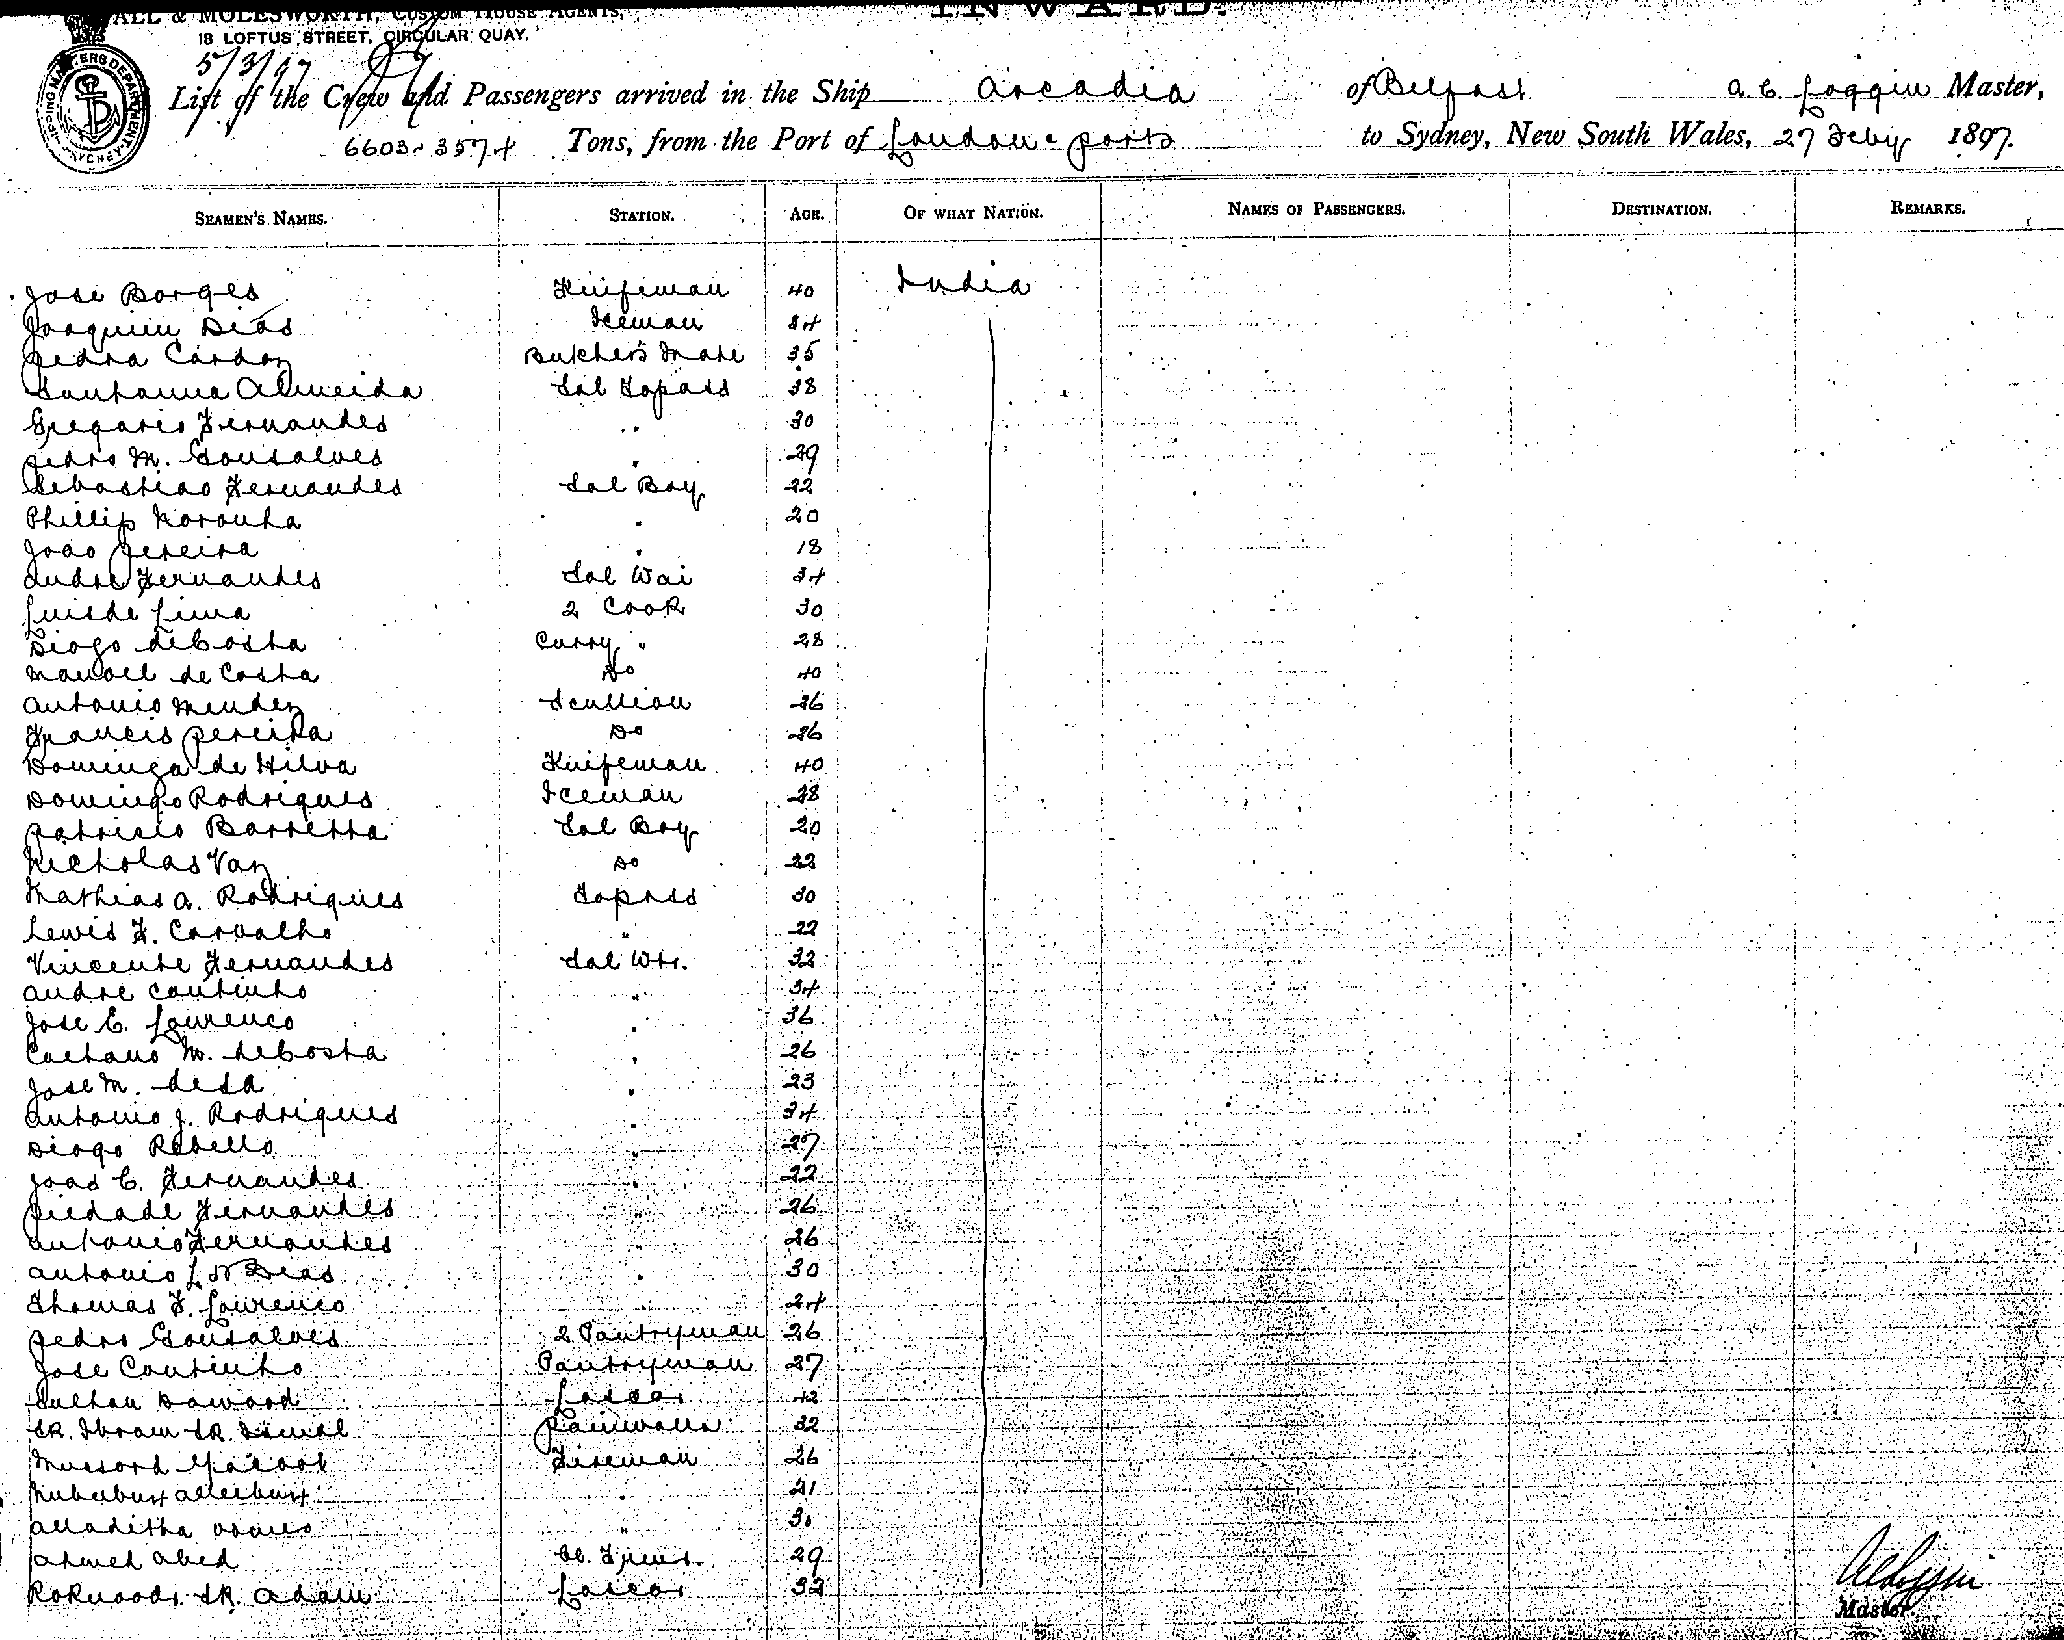 ALL & MOLESWORTH, CUSTOM HOUSE AGENTS,
INWARD.
18 LOFTUS STREET, CIRCULAR QUAY.
5/3/97
SHIPPING MASTERS DEPARTMENT SYDNEY
List of the Crew and Passengers arrived in the Ship Arcadia of Belfast A. C. Loggin Master,
6603-3574 Tons, from the Port of London & ports to Sydney, New South Wales, 27 Feby 1897.
SEAMEN'S NAMES. STATION. AGE. OF WHAT NATION. NAMES OF PASSENGERS. DESTINATION. REMARKS.
Jose Borges Knifeman 40 India
Joaquim Dias Iceman 34
Pedra Cardoz Butcher's Mate 35
Santanna Almeida Sal Topass 38
Gregario Fernandes " 30
Pedro M. Gonsalves " 29
Sebastiao Fernandes Sal Boy 22
Phillip Noronha " 20
Joao Pereira " 18
Andre Fernandes Sal Wai 34
Luis de Lima 2 Cook 30
Diogo deCosta Curry " 28
Manoel de Costa Do 40
Antonio Mendez Scullion 26
Francis Pereira Do 26
Dominga de Silva Knifeman 40
Domingo Rodrigues Iceman 28
Patricio Barretta Sal Boy 20
Nicholas Vaz Do 22
Mathias A. Rodrigues Topass 30
Lewis F. Carvalho " 22
Vincente Fernandes Sal Wtr. 32
Andre Coutinho " 34
Jose C. Lourenco " 36
Caetano M. deCosta " 26
Jose M. deSa " 23
Antonio J. Rodrigues " 34
Diogo Rebello " 27
Joao C. Fernandes " 22
Piedade Fernandes " 26
Antonio Fernandes " 26
Antonio Dias " 30
Thomas F. Lourenco " 24
Pedro Gonsalves 2 Pantryman 26
Jose Coutinho Pantryman 27
Sultan Dawood Lascar 42
SK. Ibram SK. Ismal Paniwalla 32
Yacoob Fireman 26
" 21
Alladitha " 3
Ahmed Abed 29
SK. Adam Lascar 32
A C Loggin
Master.